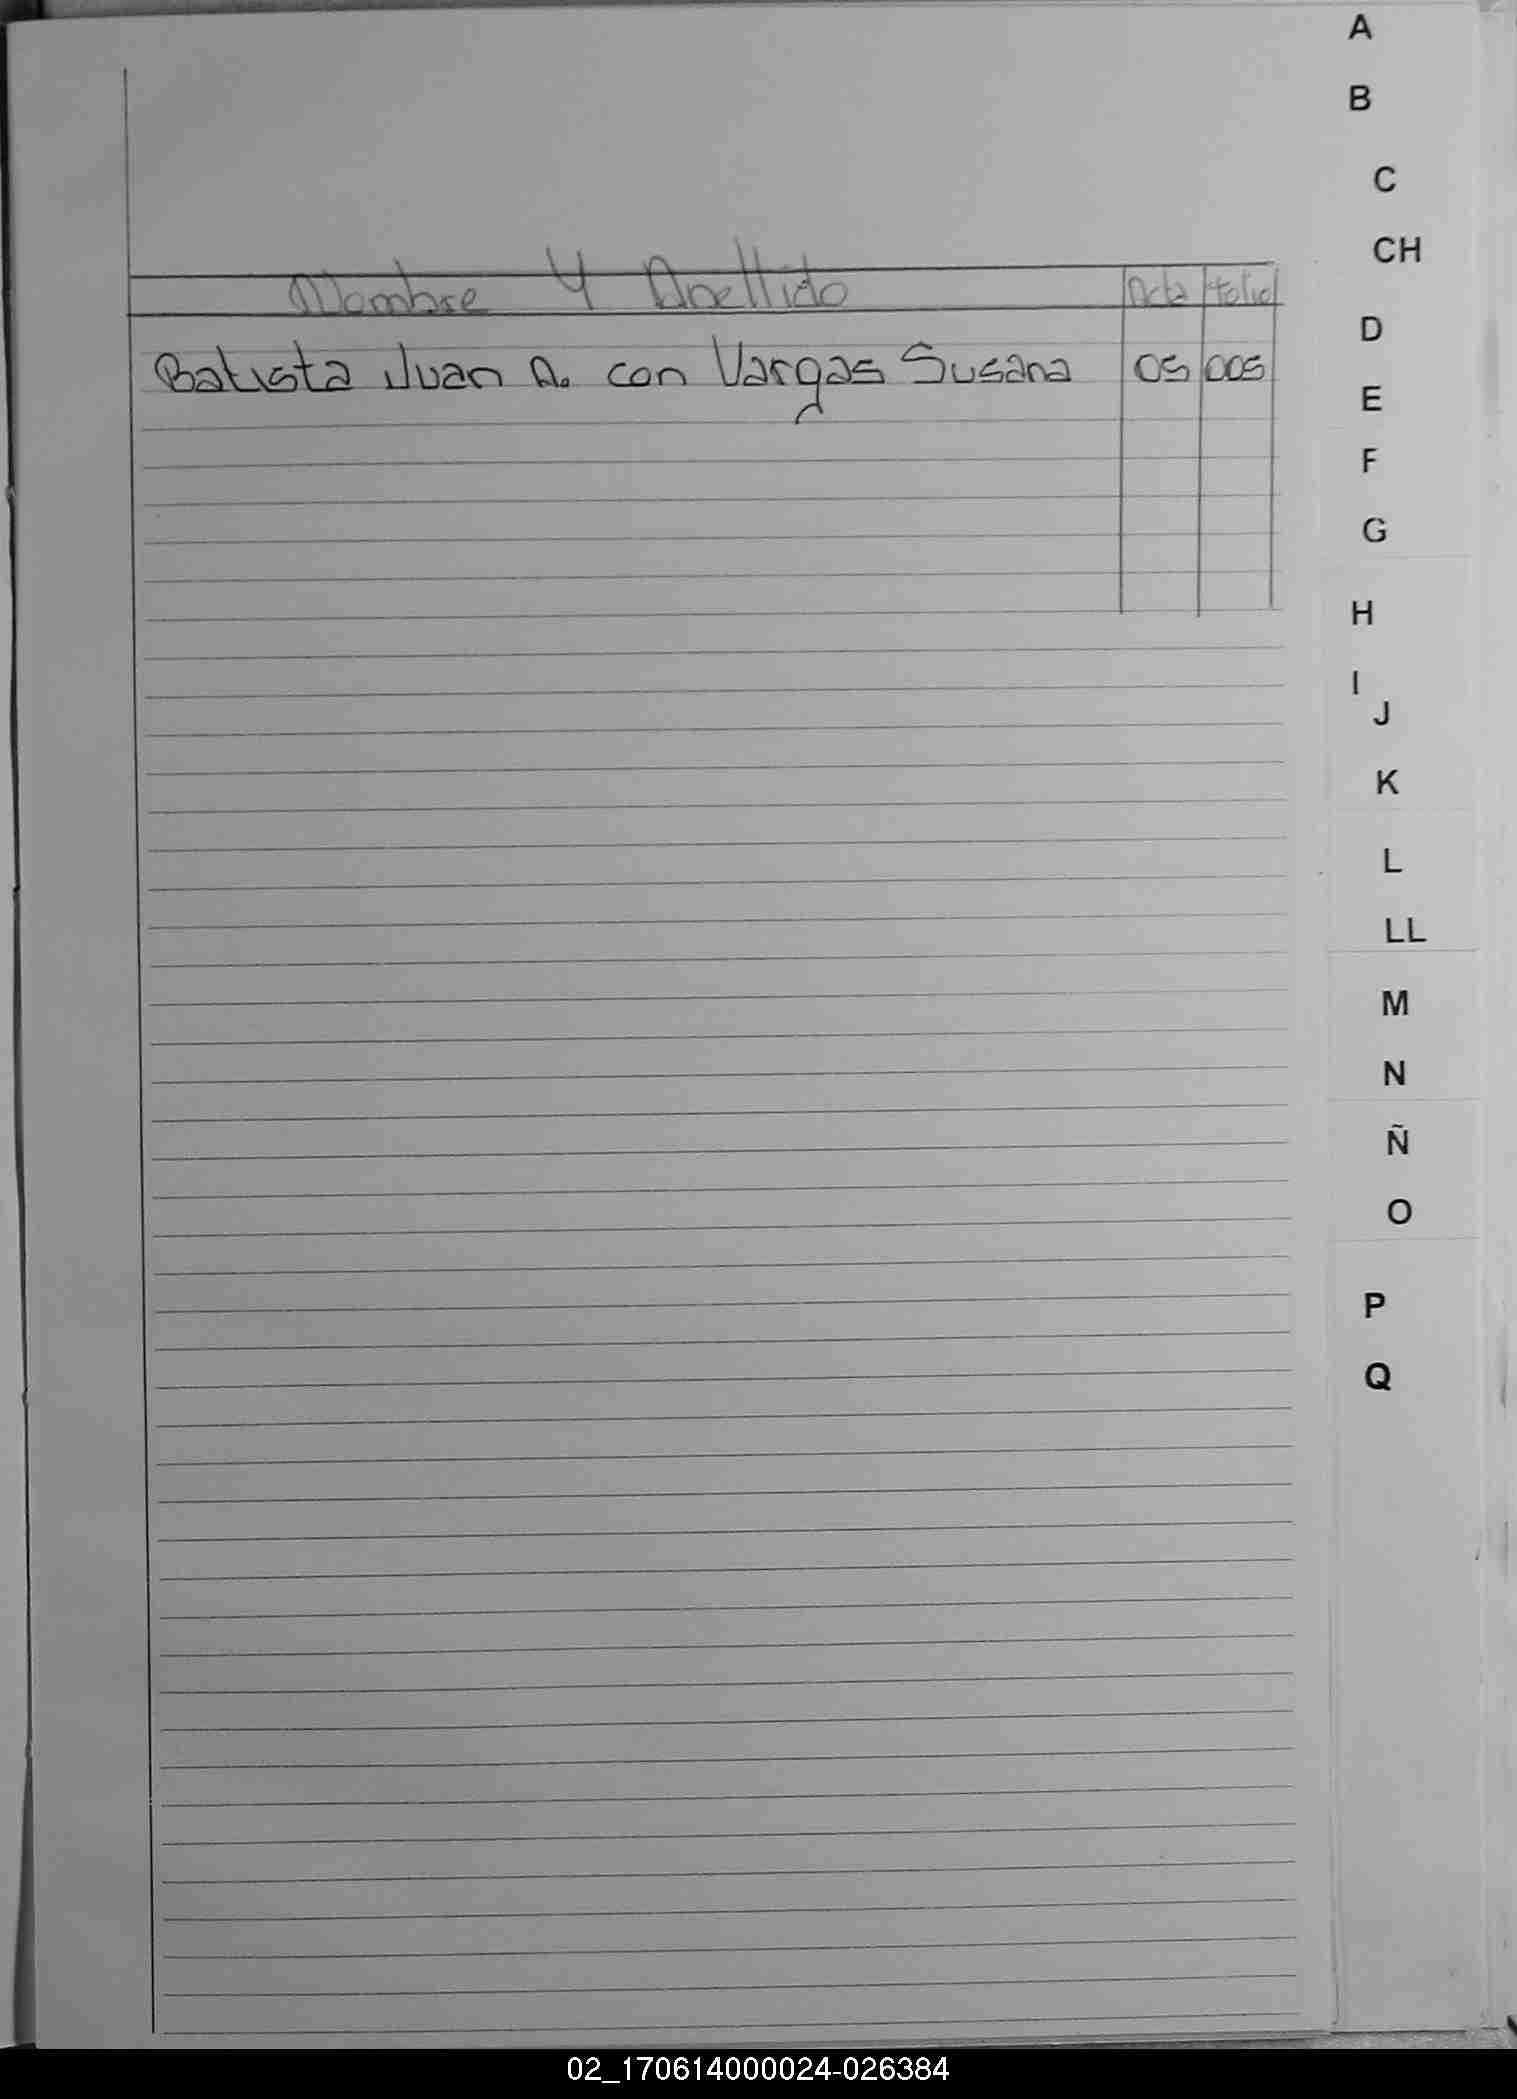 A
B
C
CH
Nombre Y Apellido Acta folio
D
Batista Juan A. con Vargas Susana 05 005
E
F
G
H
I
J
K
L
LL
M
N
Ñ
O
P
Q
02_170614000024-026384